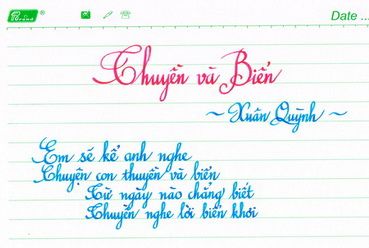 Date ...
Thuyền và Biển
~ Xuân Quỳnh ~
Em sẽ kể anh nghe
Chuyện con thuyền và biển
Từ ngày nào chẳng biết
Thuyền nghe lời biển khơi